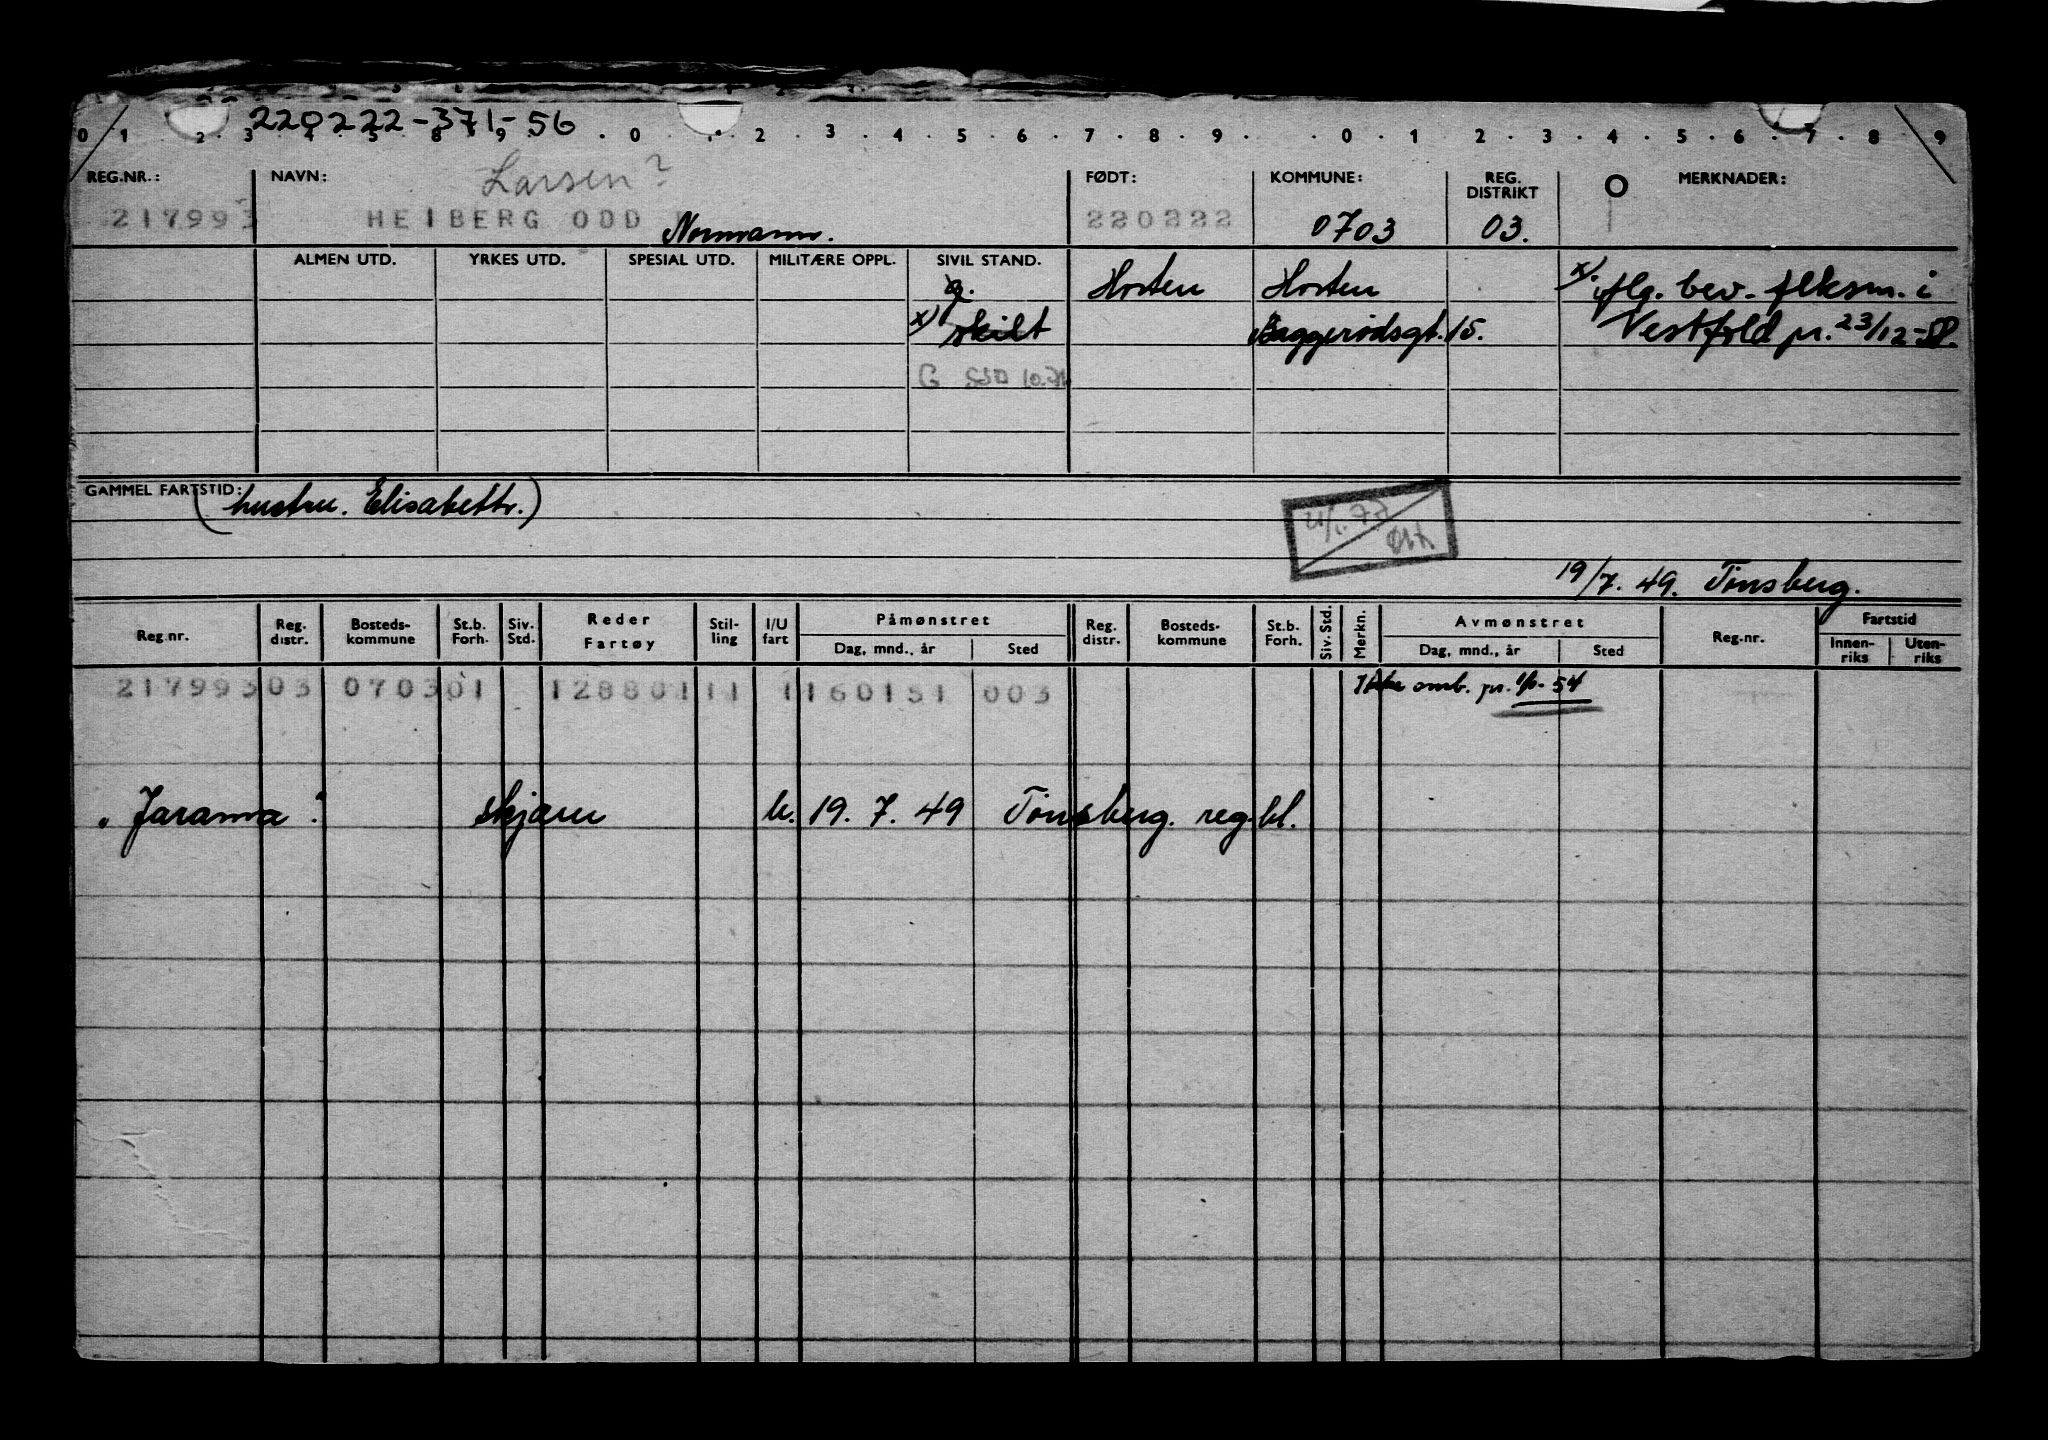 220222-371-56
0 1 . 2 . 3 . 4 . 5 . 8 . 9 . . 0 . 1 . 2 . 3 . 4 . 5 . 6 . 7 . 8 . 9 . . 0 . 1 . 2 . 3 . 4 . 5 . 6 . 7 . 8 . 9
Larsen?
REG.NR.: NAVN: FØDT: KOMMUNE: REG. DISTRIKT MERKNADER:
217993 HEIBERG ODD Normann. 220222 0703 03.
ALMEN UTD. YRKES UTD. SPESIAL UTD. MILITÆRE OPPL. SIVIL STAND.
g. Horten Horten x). iflg. bev. flksm. i
x) skilt Baggerødsgt. 15. Vestfold pr. 23/12-50.
G SSD
GAMMEL FARTSTID: (hustru. Elisabeth.)
19/7. 49. Tønsberg.
Reg.nr. Reg. distr. Bosteds-kommune St.b. Forh. Siv. Std. Reder Fartøy Stil-ling I/U fart Påmønstret Dag, mnd., år Sted Reg. distr. Bosteds-kommune St.b. Forh. Siv. Std. Merkn. Avmønstret Dag, mnd., år Sted Reg.nr. Fartstid Innen-riks Uten-riks
217993 03 0703 01 128801 11 1 160151 003 Ikke omb. pr. 1/1-54
"Jarama". skjærer u. 19. 7. 49 Tønsberg. reg.bl.